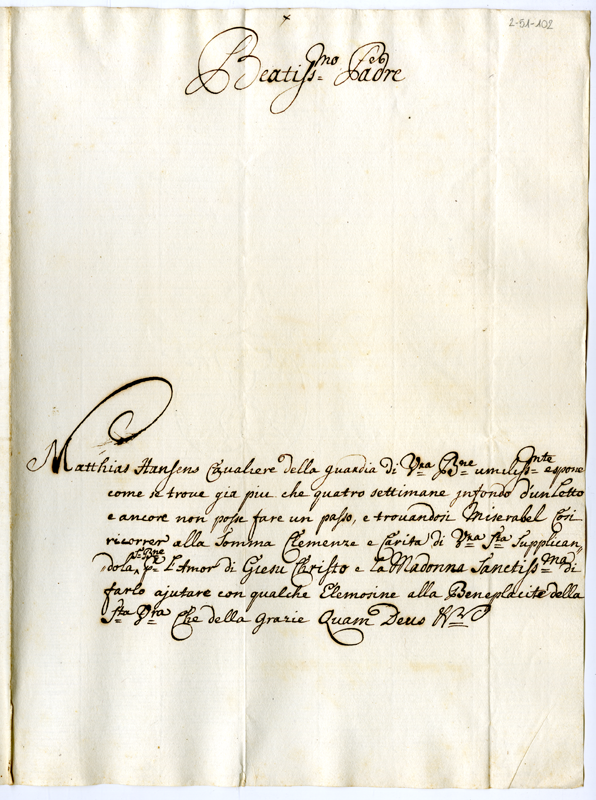 2-51-102
Beatiss:mo Padre
Matthias Hansens Cavaliere della guardia di Vra Bne umiliss:mnte espone
come se trove gia piu che quatro settimane jnfondo d'un Letto
e ancore non posse fare un passo, e trovandosi Miserabel Cosi
ricorrer alla Somma Clemenze e Carita di Vra Sta Supplican,
dola pr L'Amor di Giesu Christo e la Madonna Sanctiss:ma di
farlo ajutare con qualche Elemosine alla Beneplacite della
Sta Vra Che della grazie Quam Deus